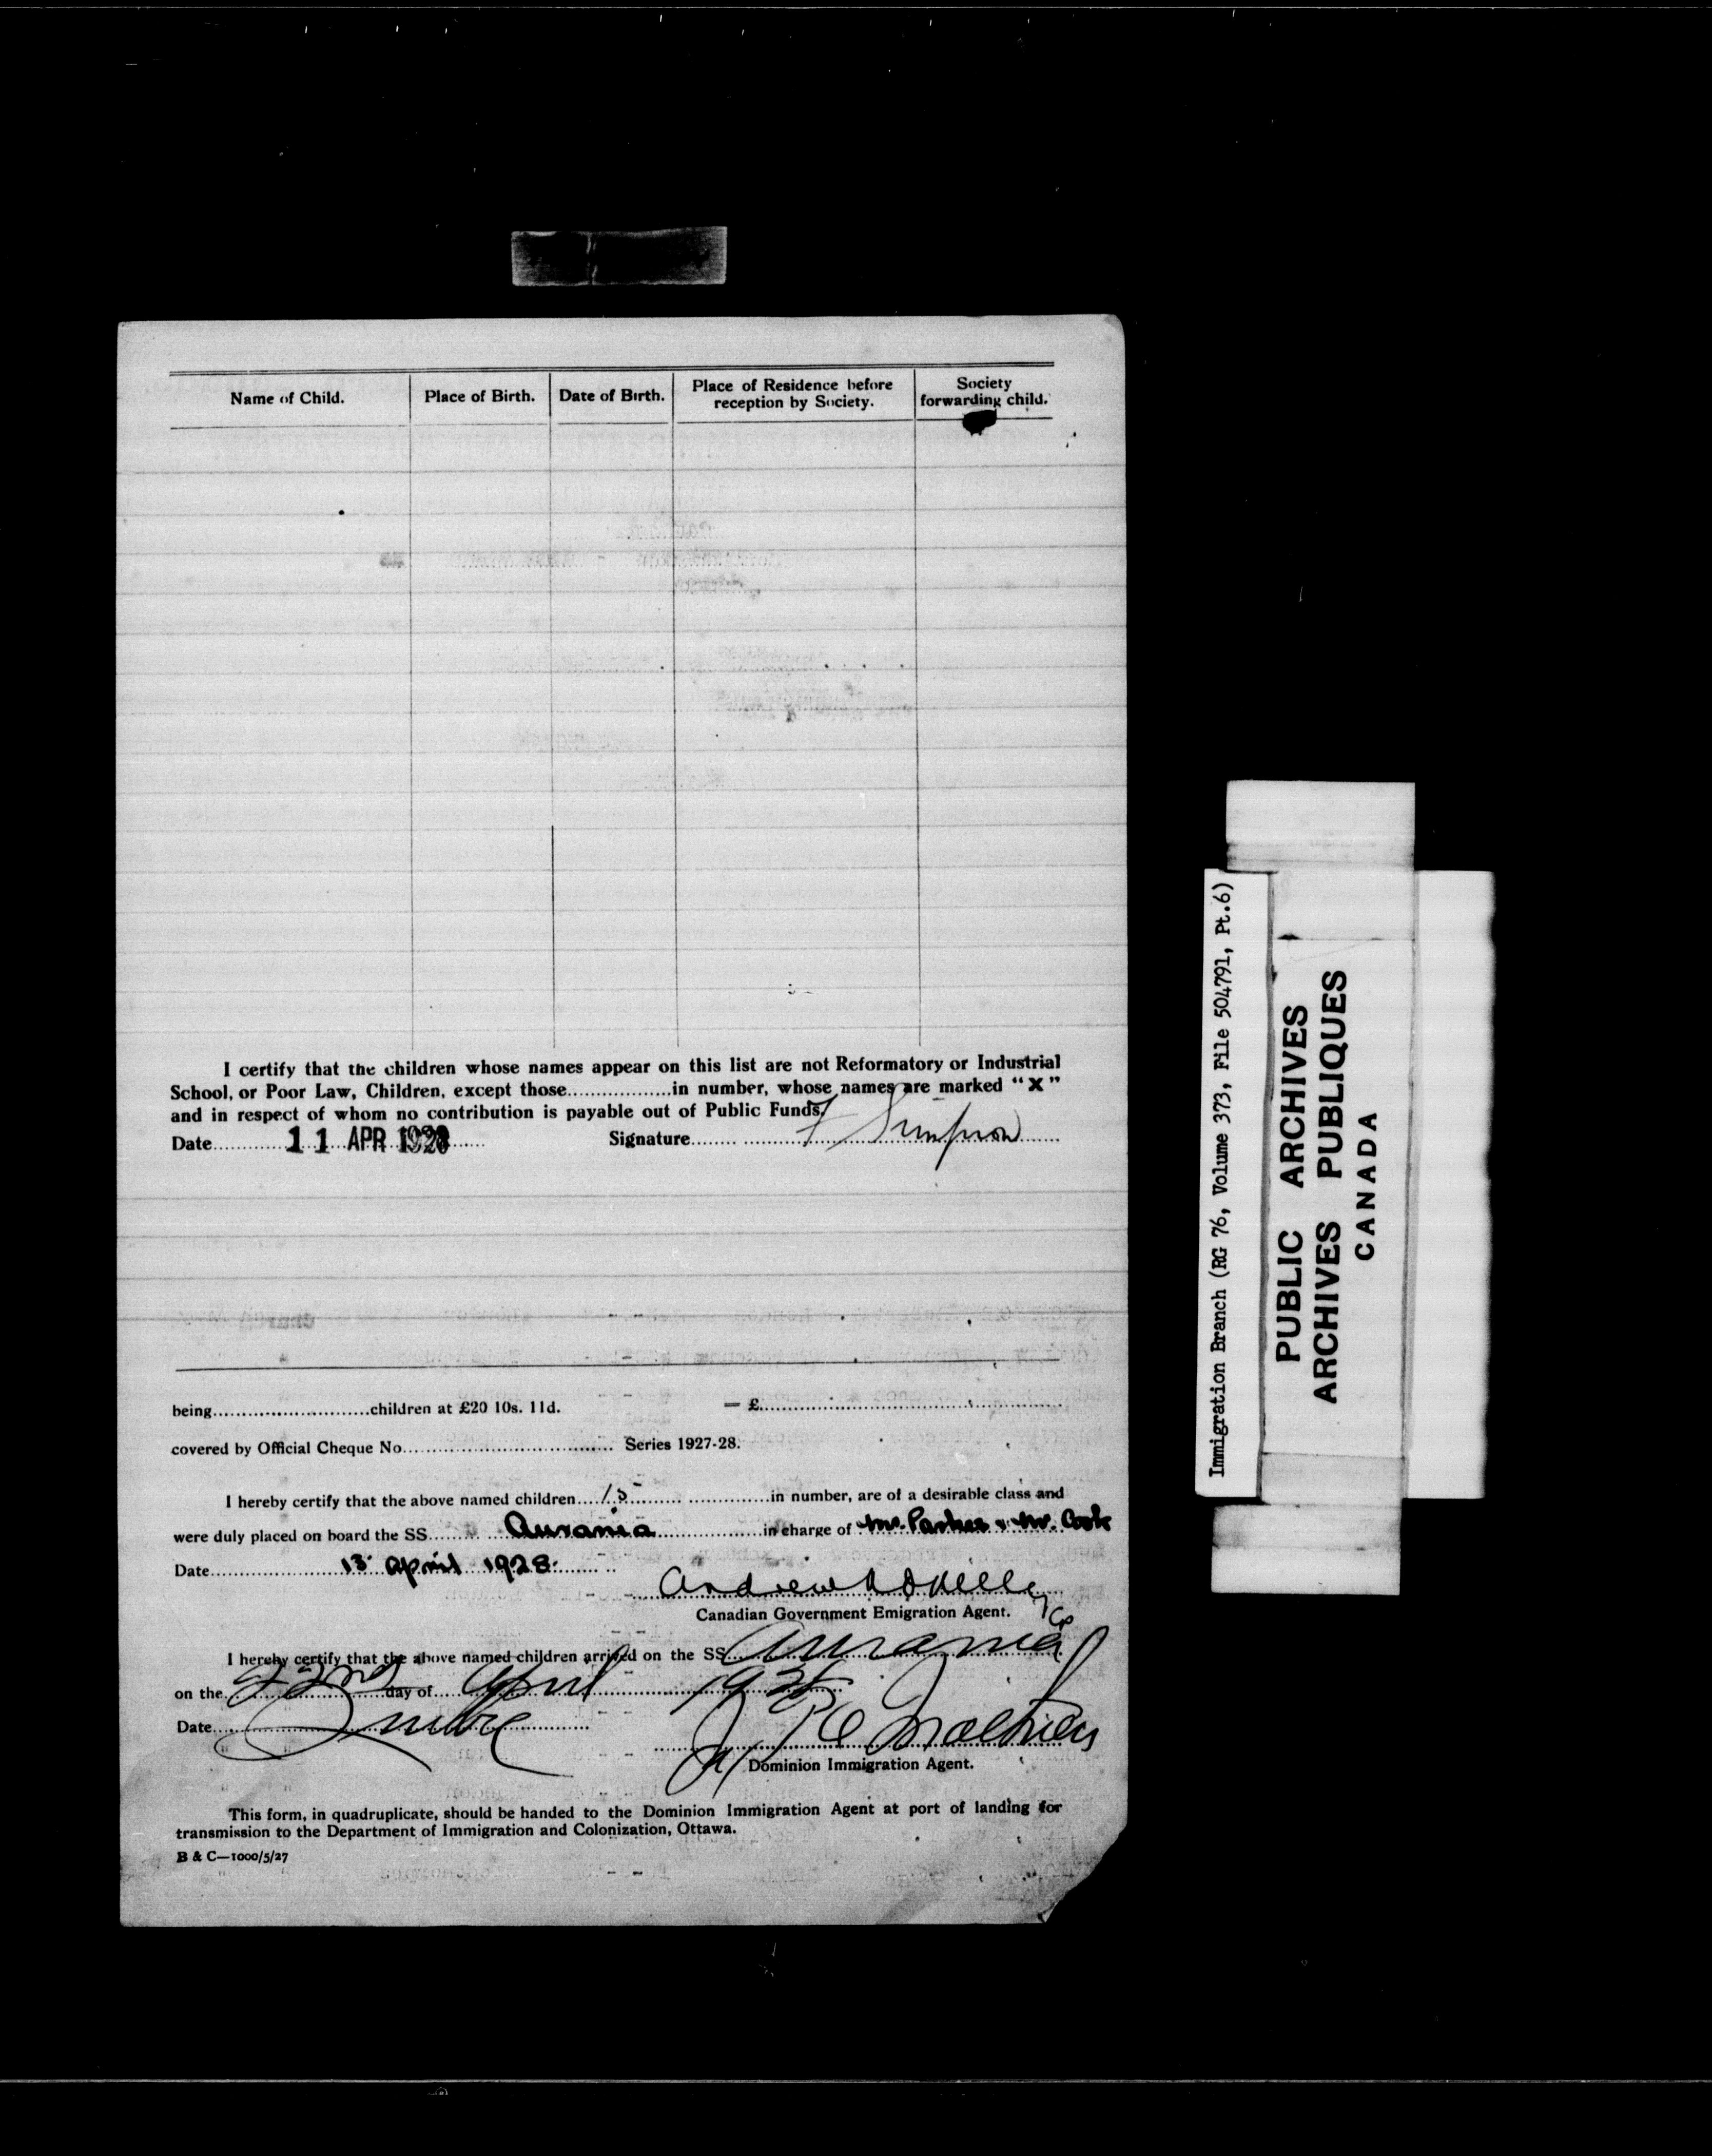 Name of Child. Place of Birth. Date of Birth. Place of Residence before reception by Society. Society forwarding child.
I certify that the children whose names appear on this list are not Reformatory or Industrial
School, or Poor Law, Children, except those.................in number, whose names are marked "X"
and in respect of whom no contribution is payable out of Public Funds.
Date 11 APR 1928 Signature F Simpson
being..........................children at £20 10s. 11d. — £
covered by Official Cheque No.................................. Series 1927-28.
I hereby certify that the above named children 15 in number, are of a desirable class and
were duly placed on board the SS. Aurania in charge of Mr. Parker & Mr. Cook
Date 13 April 1928.
Andrew
Canadian Government Emigration Agent.
I hereby certify that the above named children arrived on the SS Aurania
on the 22nd day of April 1928
Date Quebec
Dominion Immigration Agent.
This form, in quadruplicate, should be handed to the Dominion Immigration Agent at port of landing for
transmission to the Department of Immigration and Colonization, Ottawa.
B & C—1000/5/27
Immigration Branch (RG 76, Volume 373, File 504791, Pt.6)
PUBLIC ARCHIVES
ARCHIVES PUBLIQUES
CANADA